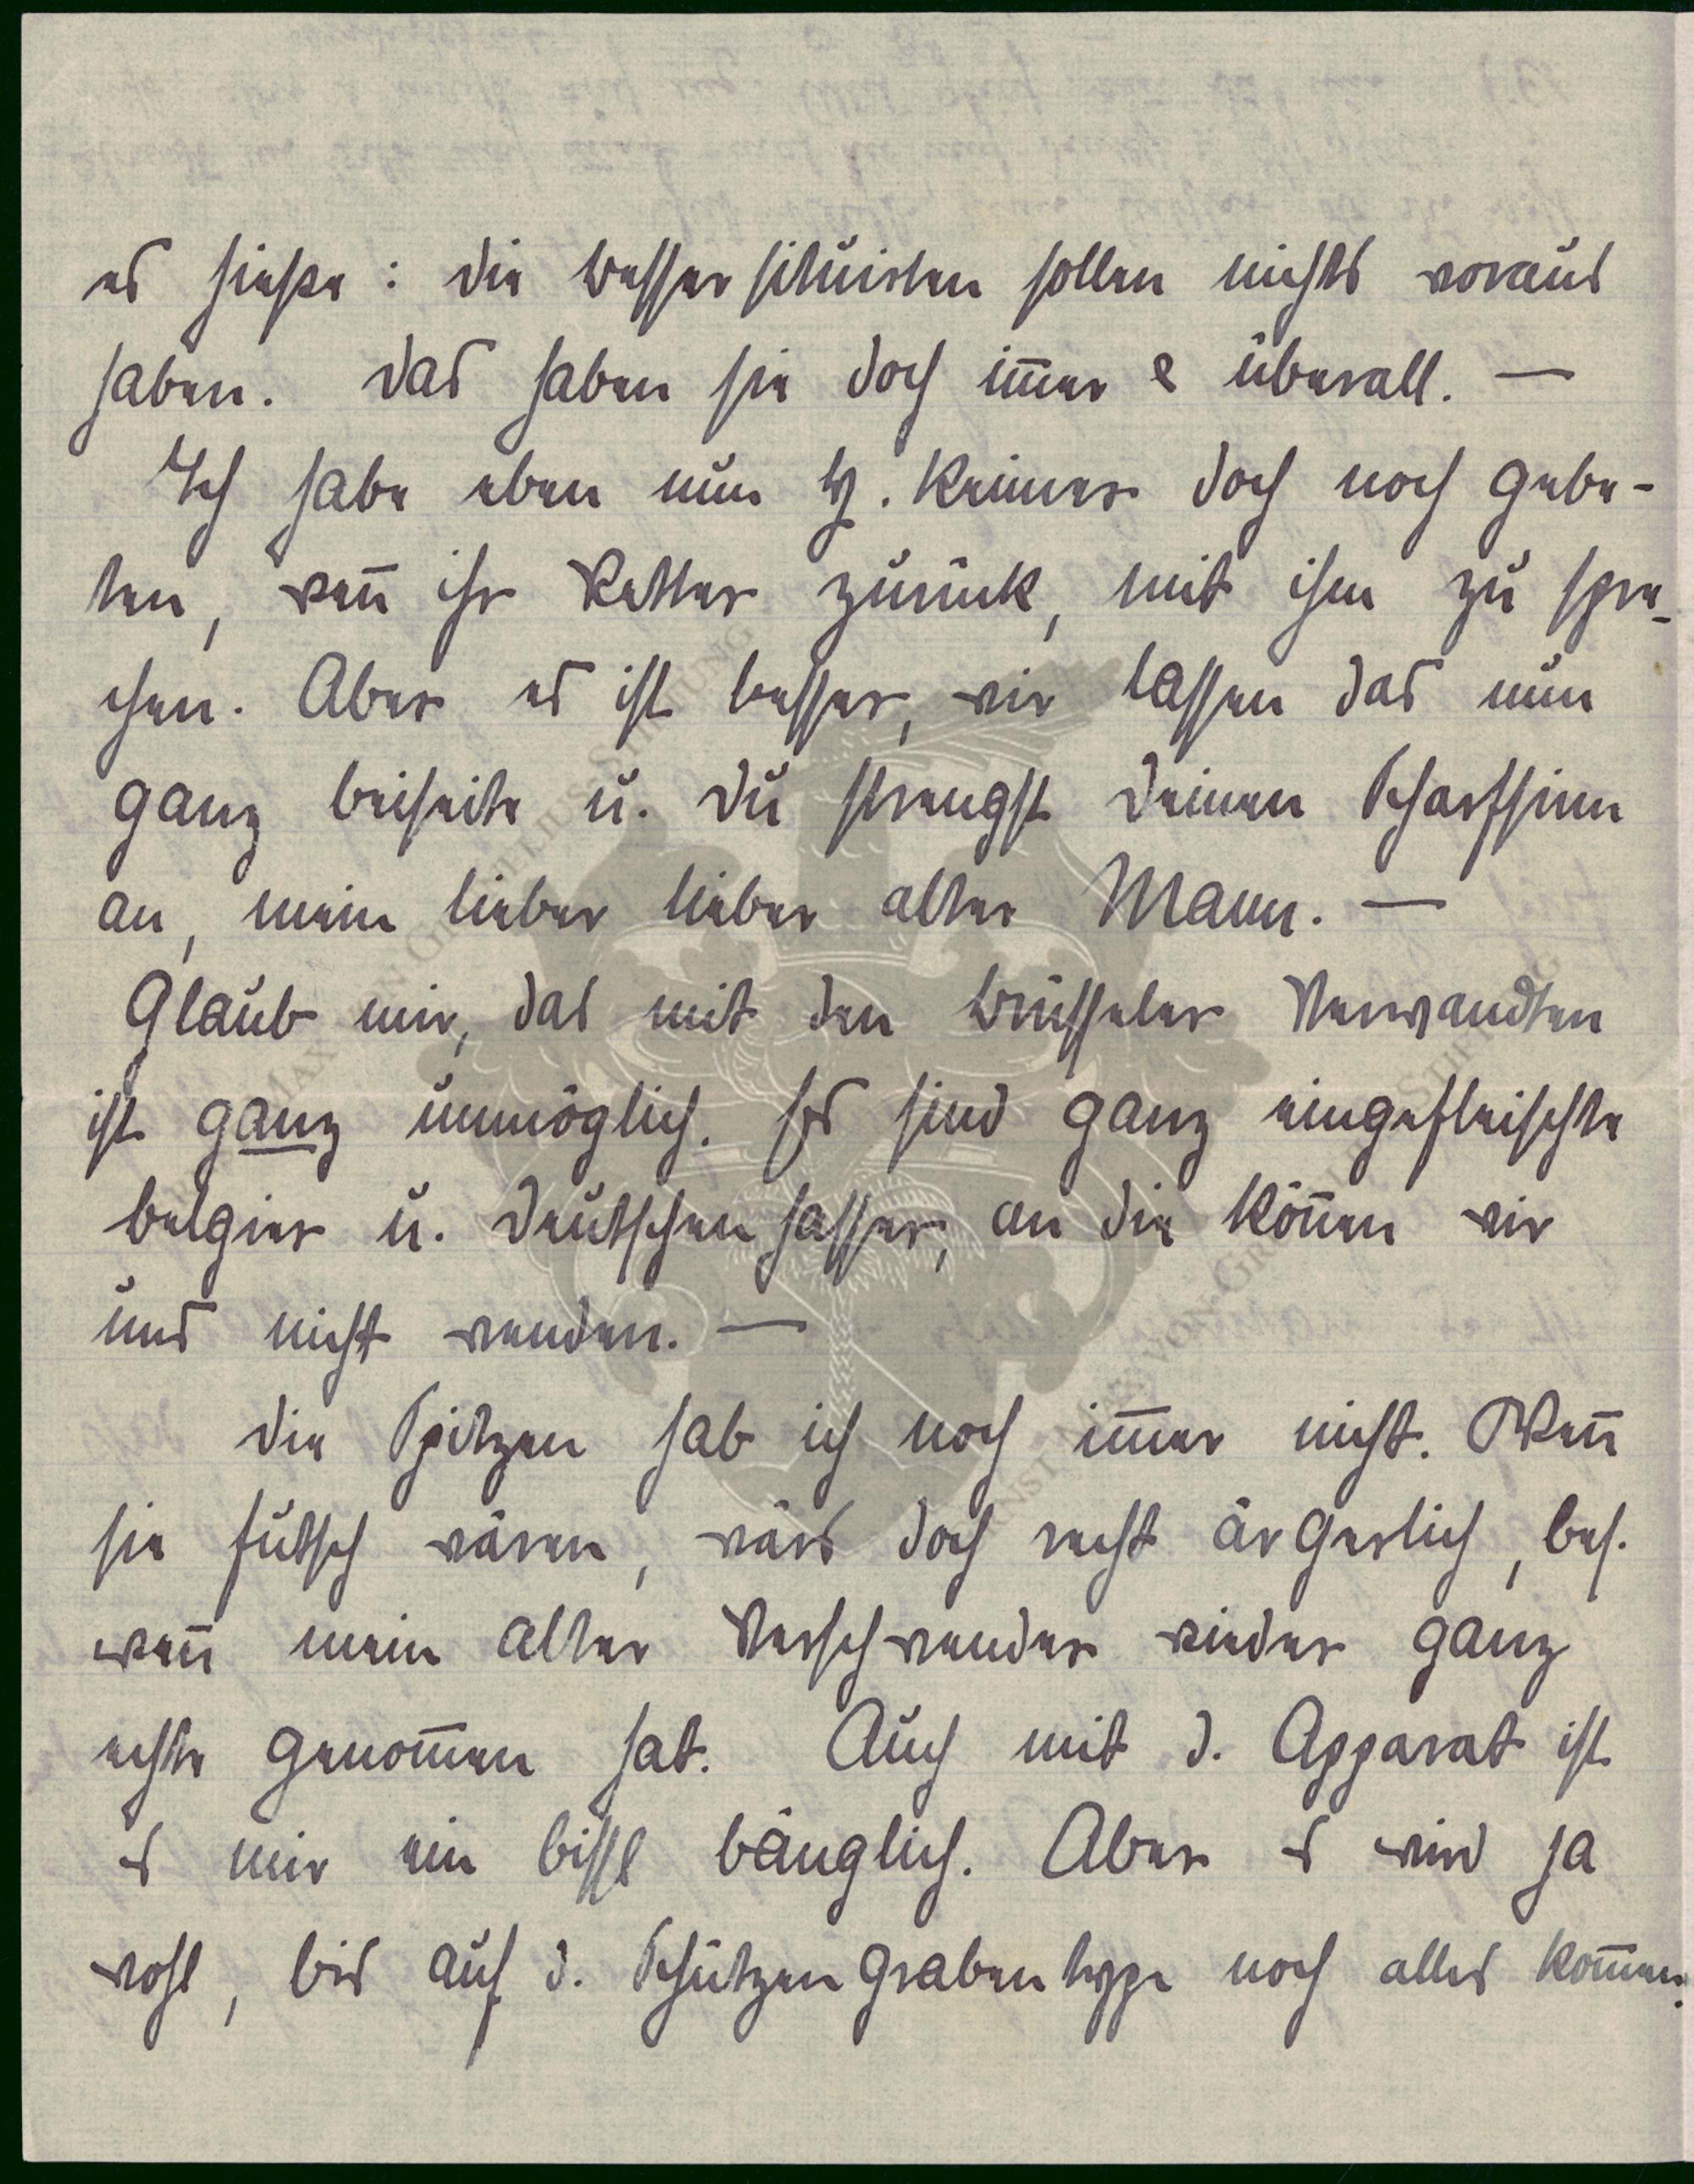 es hieße: die besser situirten sollen nichts voraus
haben. Das haben sie doch im̄er & überall. —
Ich habe eben nun H. Keimer doch noch gebe-
ten, wen̄ ihr Vetter zurück, mit ihm zu spre-
chen. Aber es ist besser, wir lassen das nun
ganz beiseite u. Du strengst Deinen Scharfsinn
an, mein lieber lieber alter Mann. —
Glaub mir, das mit den Brüsseler Verwandten
ist ganz unmöglich. Es sind ganz eingefleischte
Belgier u. Deutschenhasser, an die kön̄en wir
uns nicht wenden. —
Die Spitzen hab ich noch im̄er nicht. Wen̄
sie futsch wären, wärs doch recht ärgerlich, bes.
wen̄ mein alter Verschwender wieder ganz
echte genom̄en hat. Auch mit d. Apparat ist
es mir ein bissl bänglich. Aber es wird ja
wohl, bis auf d. Schützengrabentype noch alles kom̄en.